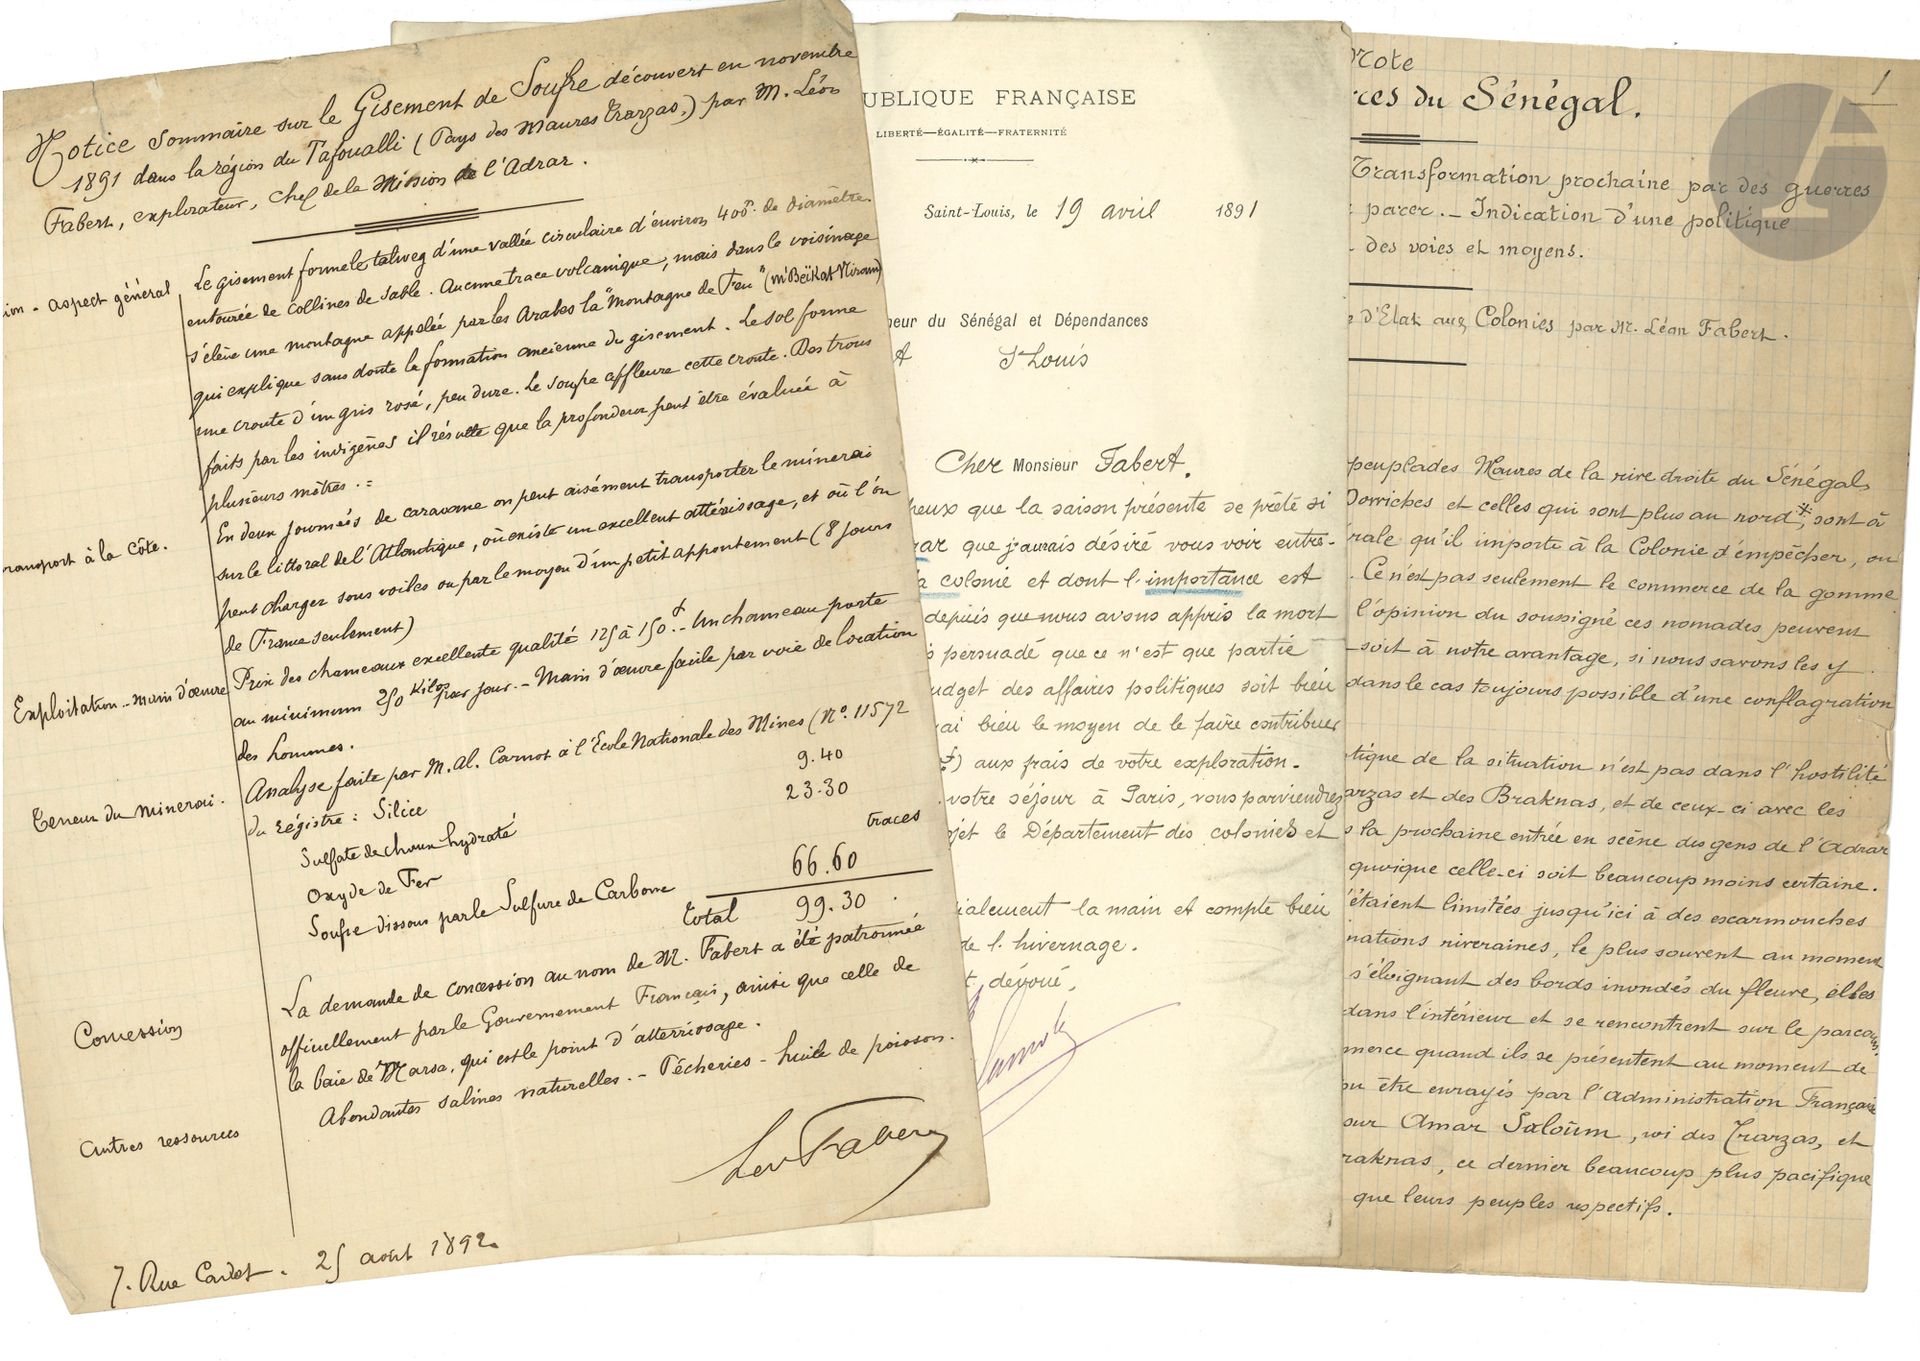 Notice Sommaire sur le Gisement de Soufre découvert en novembre
1891 dans la région du Tafoualli (Pays des Maures Trarzas.) par M. Léon
Fabert, explorateur, chef de la Mission de l'Adrar.
ion - aspect général
Le gisement forme le talweg d'une vallée circulaire d'environ 400m. de diamètre
entourée de collines de sable. Aucune trace volcanique, mais dans le voisinage
s'élève une montagne appelée par les Arabes la "Montagne de Feu"
qui explique sans doute la formation ancienne du gisement. Le sol forme
une croute d'un gris rosé, peu dure. Le soufre affleure cette croute. Des trous
faits par les indigènes il résulte que la profondeur peut être évaluée à
plusieurs mètres. =
ransport à la côte.
En deux journées de caravane on peut aisément transporter le minerai
sur le littoral de l'Atlantique, où existe un excellent attérissage, et où l'on
peut charger sous voiles ou par le moyen d'un petit appontement (8 jours
de France seulement)
Exploitation - main d'œuvre
Prix des chameaux excellente qualité 125 à 150f. - Un chameau porte
au minimum 250 Kilos par jour. - Main d'œuvre facile par voie de location
des hommes.
Teneur du minerai.
Analyse faite par M. Ad. Carnot à l'Ecole Nationale des Mines (No. 11572
du régistre : Silice 9.40
Sulfate de chaux hydraté 23.30
Oxyde de Fer traces
Soufre dissous par le Sulfure de Carbone 66.60
Total 99.30
Concession
La demande de concession au nom de M. Fabert a été patronnée
officiellement par le Gouvernement Français, ainsi que celle de
la baie de Marsa, qui est le point d'atterrissage.
autres ressources
Abondantes salines naturelles. - Pêcheries - huile de poisson.
Léon Fabert
7. Rue Cadet. 25 août 1892.
UBLIQUE FRANÇAISE
LIBERTÉ—ÉGALITÉ—FRATERNITÉ
Saint-Louis, le 19 avril 1891
neur du Sénégal et Dépendances
A St Louis
Cher Monsieur Fabert,
heux que la saison présente se prête si
rar que j'aurais désiré vous voir entre-
a colonie et dont l'importance est
depuis que nous avons appris la mort
s persuadé que ce n'est que partie
udget des affaires politiques soit bien
ai bien le moyen de le faire contribuer
f) aux frais de votre exploration.
votre séjour à Paris, vous parviendrez
jet le Département des colonies et
ialement la main et compte bien
de l'hivernage.
t dévoué,
1
Note
res du Sénégal.
Transformation prochaine par des guerres
parer. - Indication d'une politique
des voies et moyens.
e d'Etat aux Colonies par M. Léon Fabert.
peuplades Maures de la rive droite du Sénégal,
Dowiches et celles qui sont plus au nord*, sont à
rale qu'il importe à la Colonie d'empêcher, ou
. Ce n'est pas seulement le commerce de la gomme
l'opinion du soussigné ces nomades peuvent
soit à notre avantage, si nous savons les y
dans le cas toujours possible d'une conflagration
tique de la situation n'est pas dans l'hostilité
arzas et des Braknas, et de ceux-ci avec les
s la prochaine entrée en scène des gens de l'Adrar
quoique celle-ci soit beaucoup moins certaine.
étaient limitées jusqu'ici à des escarmouches
nations riveraines, le plus souvent au moment
s'éloignant des bords inondés du fleuve, elles
dans l'intérieur et se rencontrent sur le parcours
merce quand ils se présentent au moment de
ou être enrayés par l'administration Française
sur Amar Saloûm, roi des Trarzas, et
raknas, ce dernier beaucoup plus pacifique
que leurs peuples respectifs.